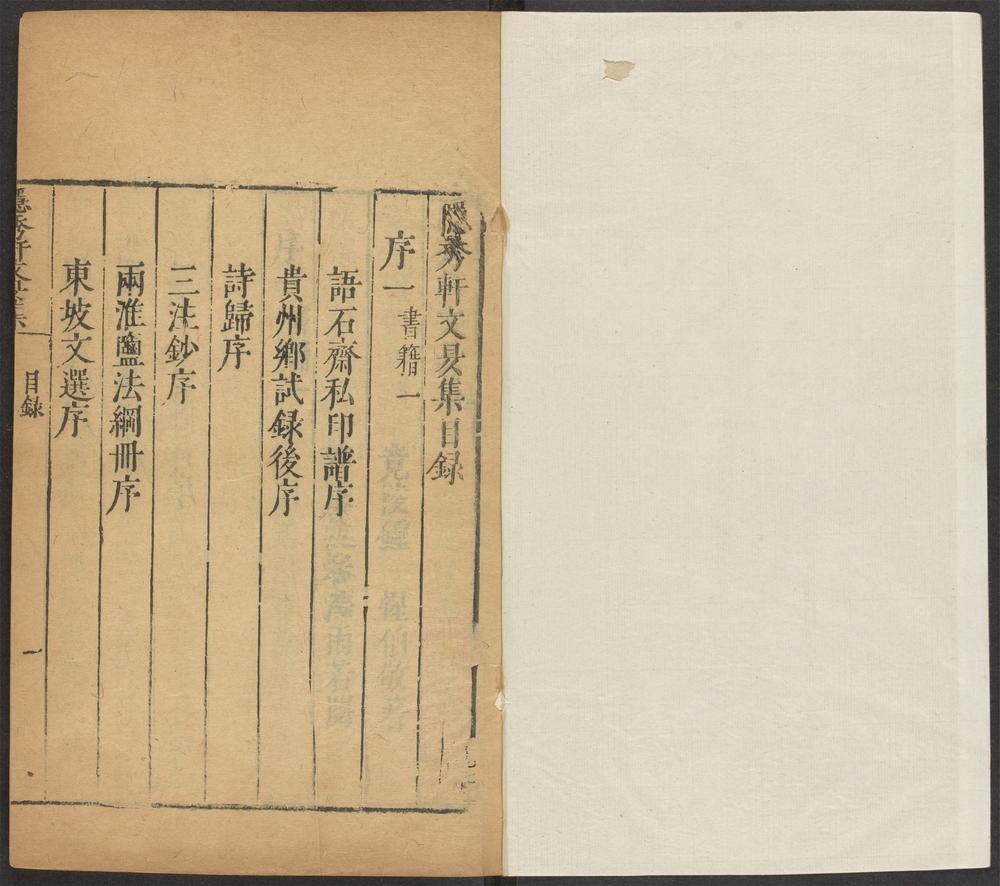 隱秀軒文昃集目録
序一 書籍一
語石齋私印譜序
貴州鄉試録後序
詩歸序
三注鈔序
兩淮鹽法綱冊序
東坡文選序
隱秀軒文
目録
一